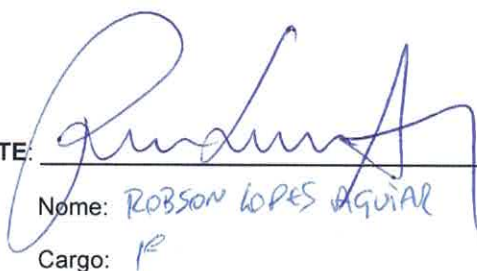 TE:
Nome: ROBSON LOPES AGUIAR
Cargo: